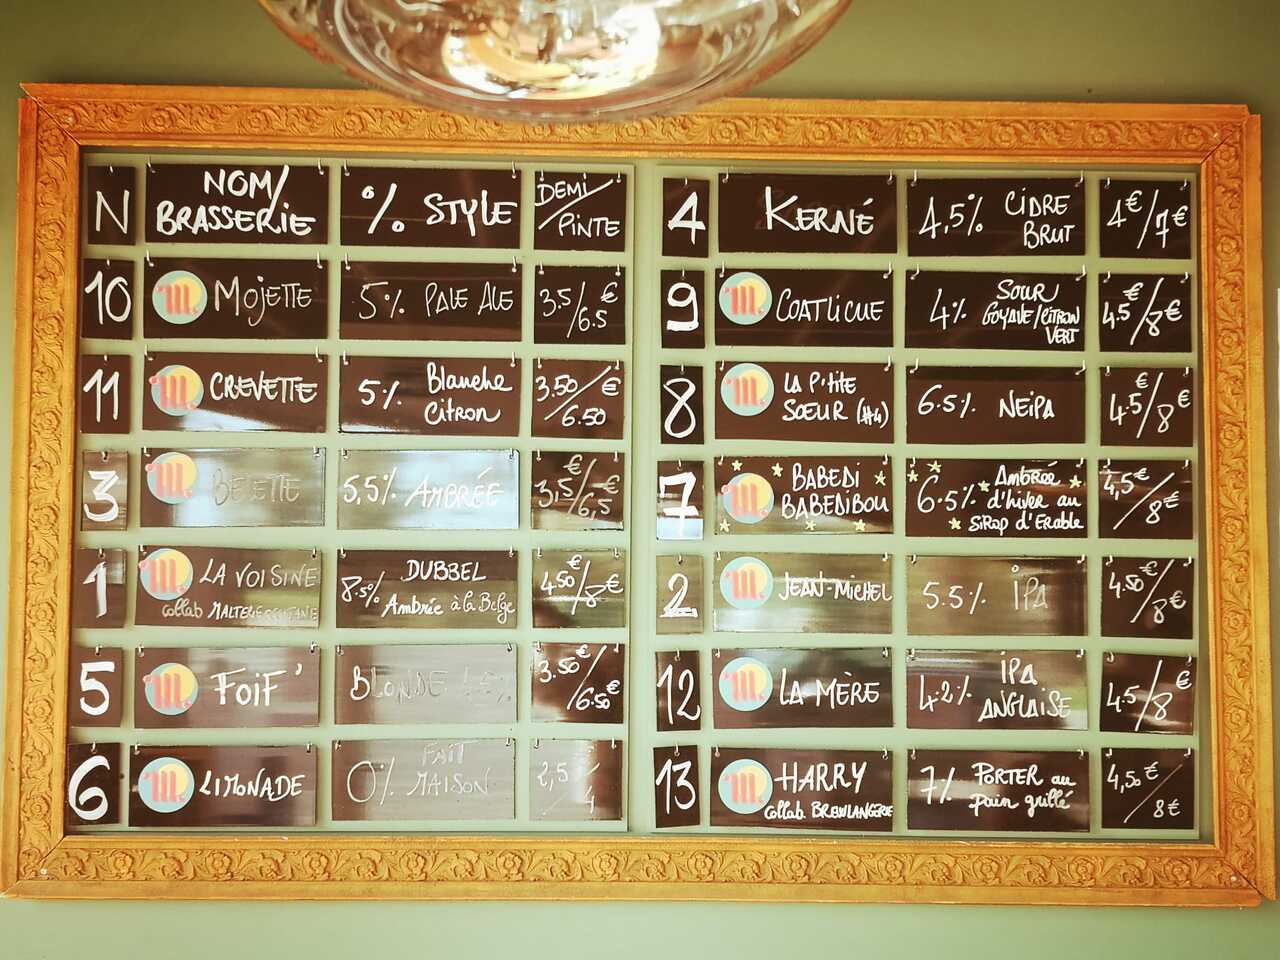 N NOM/BRASSERIE % STYLE DEMI/PINTE
10 m. MOJETTE 5% PALE ALE 3.5/6.5€
11 m. CREVETTE 5% Blanche Citron 3.50/6.50€
3 m. BELETTE 5,5% AMBRÉE 3,5€/6,5€
1 m. LA VOISINE collab 8.5% DUBBEL Ambrée à la Belge 4.50€/8€
5 m. FOIF' BLONDE 3.50€/6.50€
6 m. LIMONADE 0% FAIT MAISON 2,5/4
4 KERNÉ 4,5% CIDRE BRUT 4€/7€
9 m. COATLICUE 4% SOUR GOYAVE/CITRON VERT 4.5€/8€
8 m. LA P'tite SOEUR (#4) 6.5% NEiPA 4.5€/8€
7 m. BABEDI BABEDIBOU 6.5% Ambrée d'hiver au SiRop d'ERable 4,5€/8€
2 m. JEAN-MICHEL 5.5% IPA 4.50€/8€
12 m. LA MÈRE 4.2% IPA ANGLAISE 4.5/8€
13 m. HARRY collab. BREWLANGERIE 7% PORTER au pain grillé 4,50€/8€